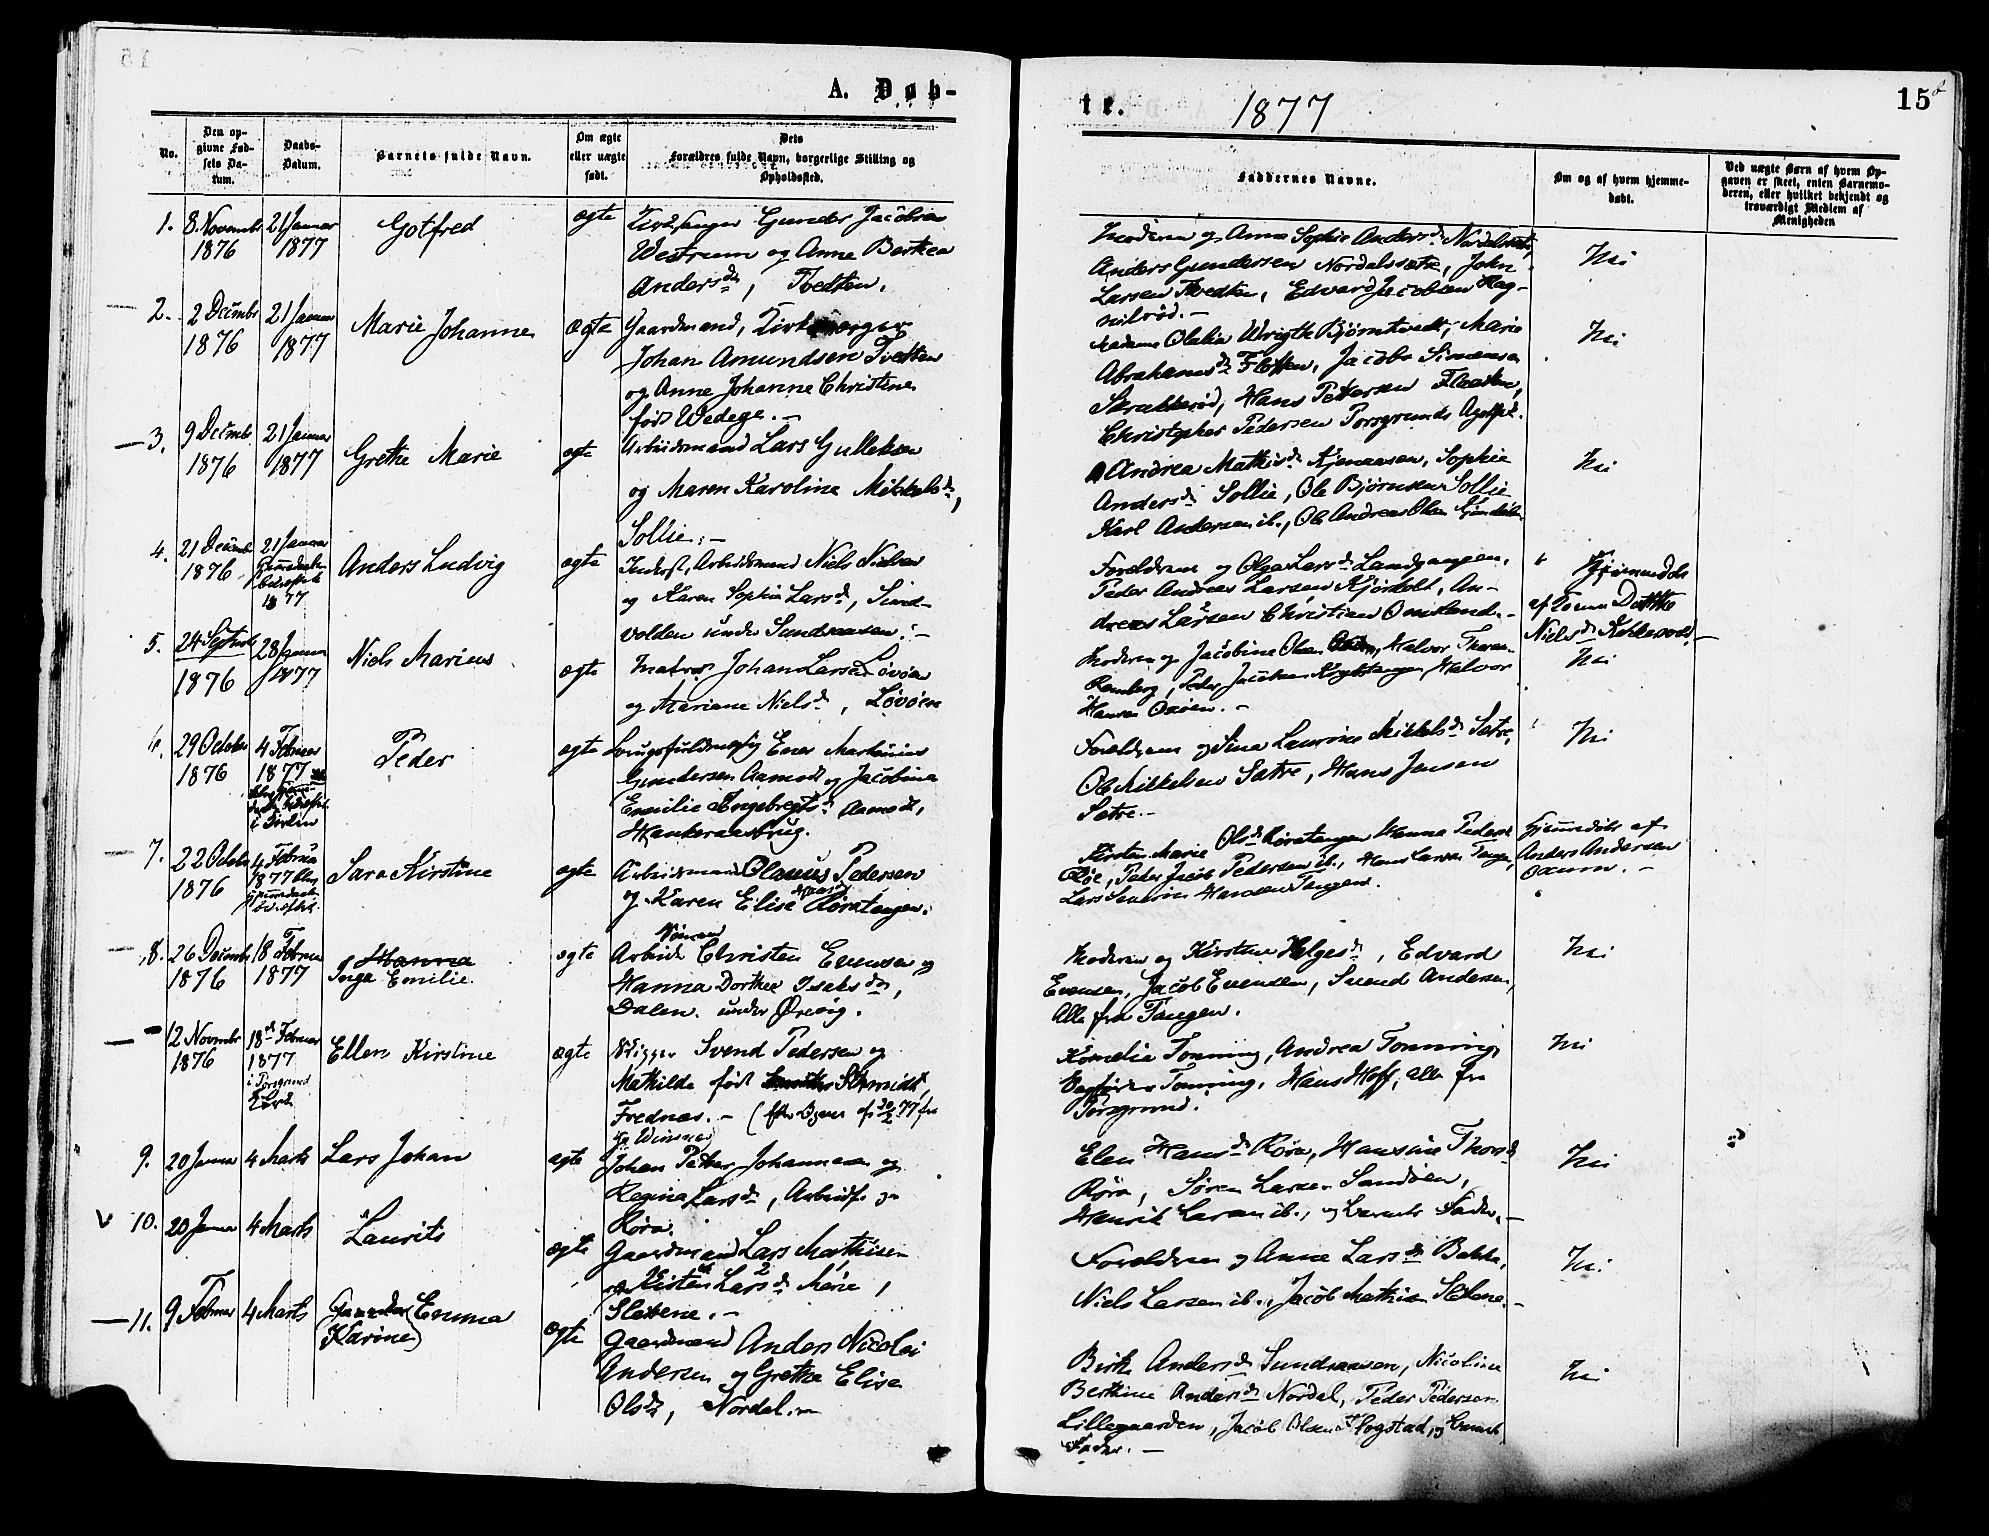 A. Døb-
No.
Den op-
givne Fød-
sels Da-
tum.
Daabs-
Datum.
Barnets fulde Navn.
Om ægte
eller uægte
født.
Dets
Forældres fulde Navn, borgerlige Stilling og
Opholdssted.
1. 8 Novembr 21 Januar Gotfred ægte Kirkesanger Gunder Jacobsen
1876 1877 Westrum og Anne Berthea
Andersd., Tvedten.
2. 2 Decembr 21 Januar Marie Johanne ægte Gaardmand, Kirkeværger
1876 1877 Johan Amundsen Tvedten
og Anne Johanne Christine
født Wedege. -
3. 9 Decembr 21 Januar Grethe Marie ægte Arbeidsmand Lars Gulleksen
1876 1877 og Maren Karoline Mikkelsd.,
Sollie. -
4. 21 Decembr 21 Januar Anders Ludvig ægte Inderst, Arbeidsmand Niels Nielsen
1876 1877 og Karen Sophie Larsd.,
volden under Sundsaasen. -
5. 24 Septembr 28 Januar Niels Marius ægte Matros Johan Larsen Løvøen
1876 1877 og Mariane Nielsd., Løvøen
6. 29 October 4 Februar Peder ægte Brugsfuldmægtig Ener Martinius
1876 1877 Gundersen Aamodt og Jacobine
Emilie Ingebregtsd. Aamodt,
7. 22 October 4 Februar Sara Kirstine ægte Arbeidsmand Olaus Pedersen
1876 1877 og Karen Elise Røratangen.
8. 26 Decembr 18 Februar Hanna ægte Arbeidsmand Christen Evensen og
1876 1877 Inga Emilie Hanna Dorthea Isaksd.,
Dalen under Ørvig.
12 Novembr 18de Februar Ellen Kirstine ægte Skipper Svend Pedersen og
1876 1877 Mathilde født Schmidt,
i Porsgrund Frednæs. -
Kirke
9. 20 Januar 4 Marts Lars Johan ægte Johan Petter Johannesen og
Regine Larsd., Arbeidsf.
Røra.
10. 20 Januar 4 Marts Laurits ægte Gaardmand Lars Mathisen
og Kirsten Larsd. Marie,
Slettene. -
11. 9 Februar 4 Marts (Gunnilda) Emma ægte Gaardmand Anders Nicolai
Karine Andersen og Grethe Elise
Olsd., Nordal. -
te. 1877 15
Faddernes Navne.
Om og af hvem hjemme-
døbt.
Ved uægte Børn af hvem Op-
gaven er skeet, enten Barnemo-
deren, eller hvilket bekjendt og
troværdigt Medlem af
Menigheden
Moderen og Anne Sophie Andersd. Nordalsæter, Nei
Anders Gundersen Nordalsæter, John
Larsen Tvedten, Edvard Jacobsen Rag-
nilrød. -
Madame Olalia Wrigth Bjørntvedt, Marie Nei
Abrahamsd. Flotten, Jacob Simonsen
Skrukkerød, Hans Pettersen Flaaten,
Christopher Pedersen Porsgrunds
Andrea Mathisd. Kjønaasen, Sophie Nei
Andersd. Sollie, Ole Bjørnsen Sollie
Karl Andersen ib., Ole Andreas Olsen
Forældrene og Olga Larsd. Landgangen, Hjemmedøbt
Peder Andreas Larsen Kjørholt, An- af Tomine Dorthea
dreas Larsen Christian Omland. - Nielsd.
Moderen og Jacobine Olsen, Halvor Nei
Ramberg, Peder Jacobsen Krogstangen, Halvor
Hansen Oxøen. -
Forældrene og Sina Laurine Mikkelsd. Sætre, Nei
Ole Mikkelsen Sætre, Hans Jensen
Sætre. -
Kirsten Marie Olsd. Røratangen Hanna Pedersd. Hjemmedøbt af
Peder Jacob Pedersen ib., Hans Larsen Tangen, Anders Andersen
Lars Severin Hansen Tangen.
Moderen og Kirstine Helgesd., Edvard Nei
Evensen, Jacob Evensen, Svend Andersen,
Alle fra Tangen.
Kornelia Tonning, Andrea Tonning, Nei
Tonning, Hans Hoff, alle fra
Porsgrund.
Elen Hansd. Røra, Hansine Thorsd. Nei
Røra, Søren Larsen Sandøen,
Henrik Larsen ib., og Barnets Fader. -
Forældrene og Anne Larsd. Bakka, Nei.
Niels Larsen ib., Jacob Mathisen Slettene. -
Birthe Andersd. Sundsaasen, Nicoline Nei
Berthine Andersd. Nordal, Peder Pedersen
Lillegaarden, Jacob Olsen Skogstad, og Barnets
Fader. -